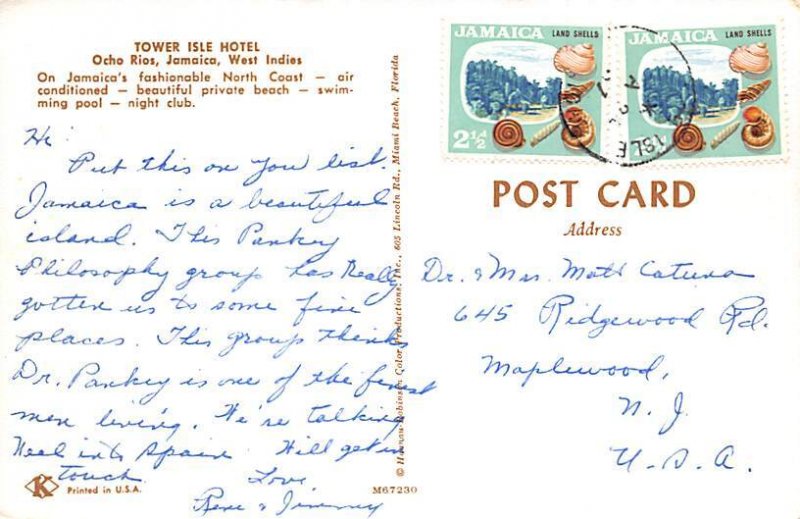 TOWER ISLE HOTEL
Ocho Rios, Jamaica, West Indies
On Jamaica's fashionable North Coast — air
conditioned — beautiful private beach — swim-
ming pool — night club.
Hi
Put this on you list.
Jamaica is a beautiful
island. This Pankey
Philosophy group has Really
gotten us to some fine
places. This group thinks
Dr. Pankey is one of the finest
men living. We're talking
Neal into Spain. Will get in
touch
Love
Rene & Jimmy
K
Printed in U.S.A.
M67230
© Hannau-Robinson Color Productions, Inc., 605 Lincoln Rd., Miami Beach, Florida
JAMAICA LAND SHELLS
2½d
JAMAICA LAND SHELLS
POST CARD
Address
Dr. & Mrs. Matt
645 Ridgewood Rd.
Maplewood,
N. J.
U. S. A.